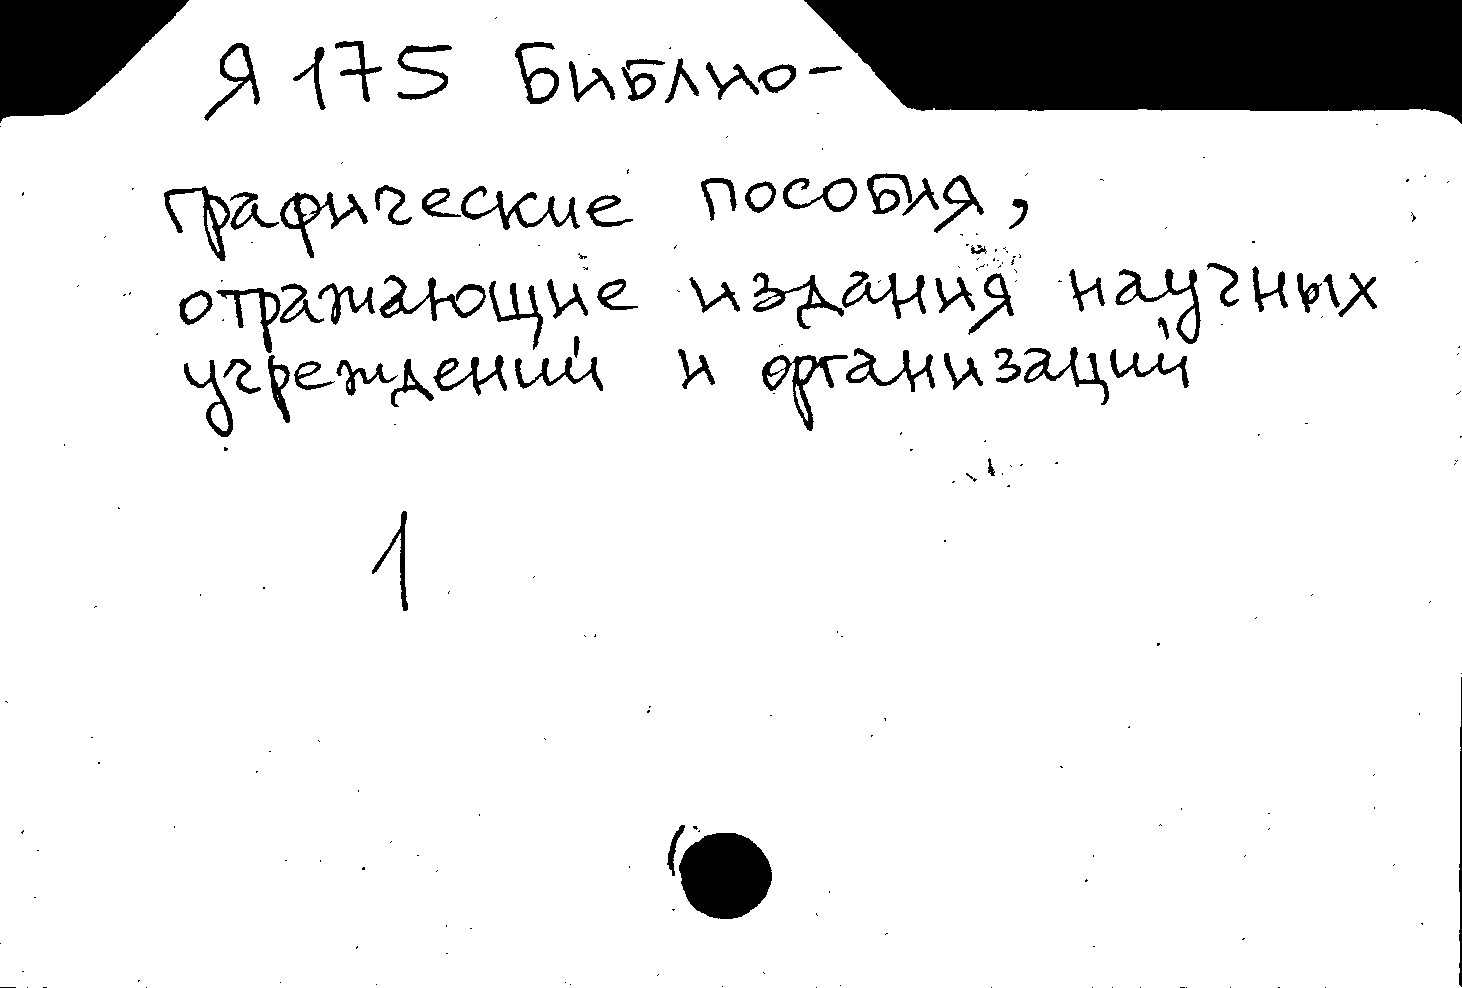 Я 175 Библио-
графические пособия,
отражающие издания научных
учреждений и организаций
1